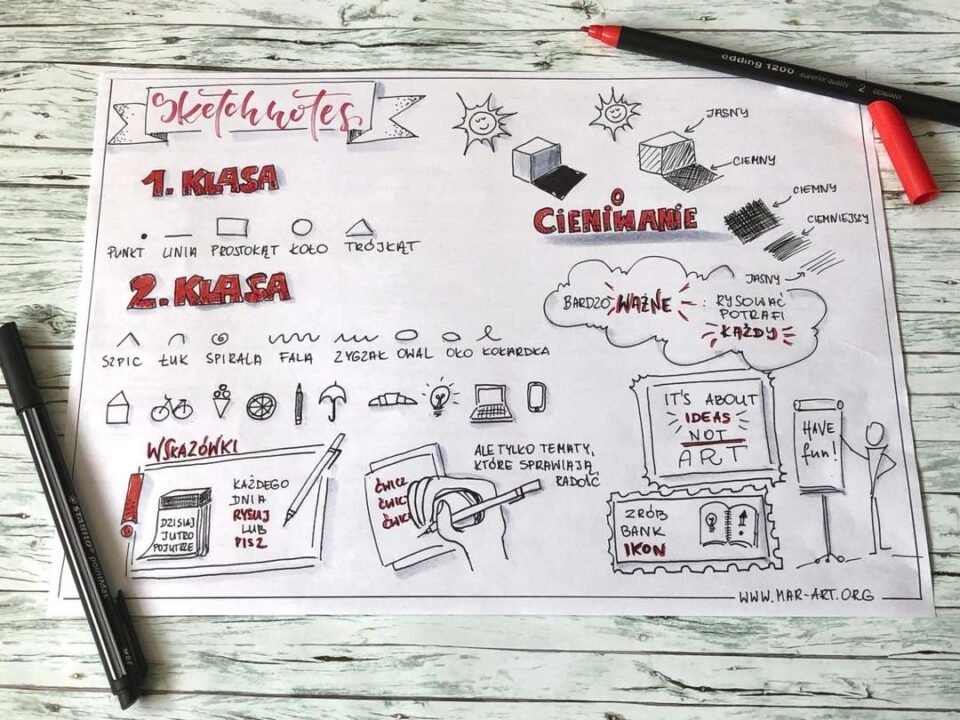 Sketchnotes
1. KLASA
PUNKT LINIA PROSTOKĄT KOŁO TRÓJKĄT
2. KLASA
SZPIC ŁUK SPIRALA FALA ZYGZAK OWAL OKO KOKARDKA
WSKAZÓWKI
DZISIAJ
JUTRO
POJUTRZE
KAŻDEGO
DNIA
RYSUJ
LUB
PISZ
ĆWICZ
ĆWICZ
ĆWICZ
ALE TYLKO TEMATY,
KTÓRE SPRAWIAJĄ
RADOŚĆ
JASNY
CIEMNY
CIENIOWANIE
CIEMNY
CIEMNIEJSZY
JASNY
BARDZO WAŻNE : RYSOWAĆ
POTRAFI
KAŻDY
IT'S ABOUT
IDEAS
NOT
ART
HAVE
fun!
ZRÓB
BANK
IKON
WWW.MAR-ART.ORG
edding 1200 superior quality 2 GERMANY
STABILO pointMax